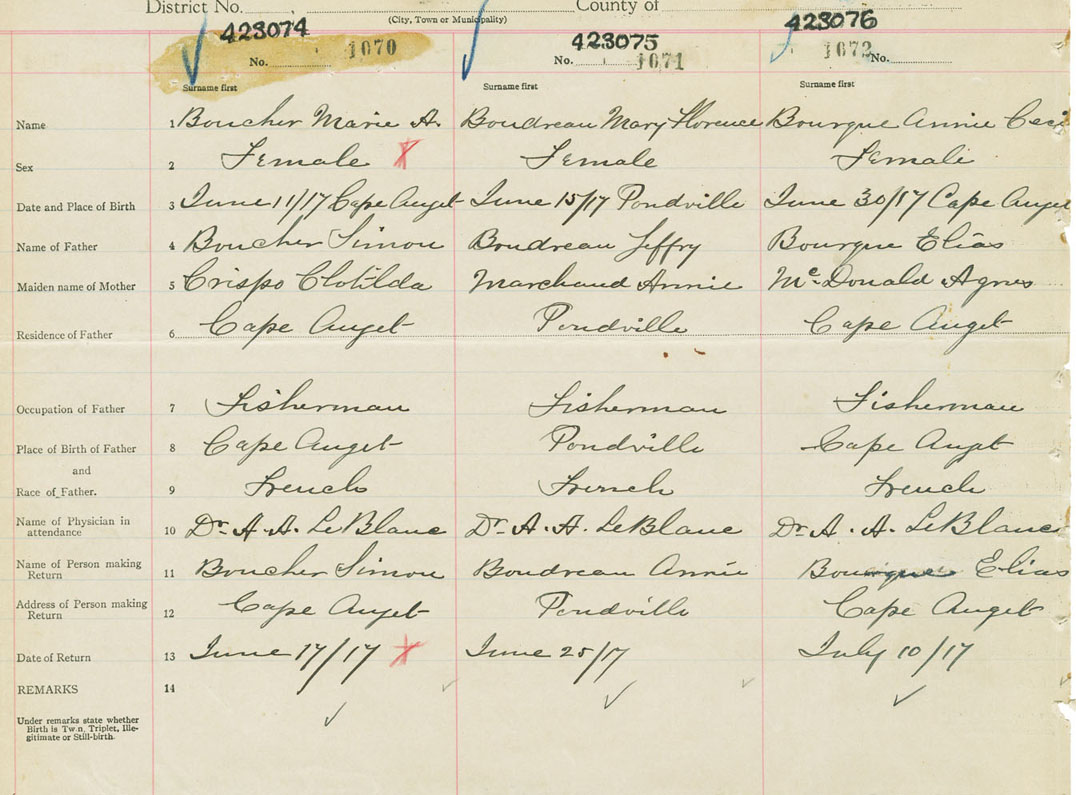 District No. County of
(City, Town or Municipality)
423074 423075 423076
No. 1070 No. 1071 1072 No.
Surname first Surname first Surname first
Name 1 Boucher Marie A. Boudreau Mary Florence Bourque Annie Ceci
Sex 2 Female X Female Female
Date and Place of Birth 3 June 11/17 Cape Auget June 15/17 Pondville June 30/17 Cape Auget
Name of Father 4 Boucher Simon Boudreau Jeffry Bourque Elias
Maiden name of Mother 5 Crispo Clotilda Marchand Annie McDonald Agnes
Residence of Father 6 Cape Auget Pondville Cape Auget
Occupation of Father 7 Fisherman Fisherman Fisherman
Place of Birth of Father 8 Cape Auget Pondville Cape Auget
and
Race of Father. 9 French French French
Name of Physician in
attendance 10 Dr. A. A. LeBlanc Dr. A. A. LeBlanc Dr. A. A. LeBlanc
Name of Person making
Return 11 Boucher Simon Boudreau Annie Bourque Elias
Address of Person making
Return 12 Cape Auget Pondville Cape Auget
Date of Return 13 June 17/17 X June 25/17 July 10/17
REMARKS 14
Under remarks state whether
Birth is Twin, Triplet, Ille-
gitimate or Still-birth.